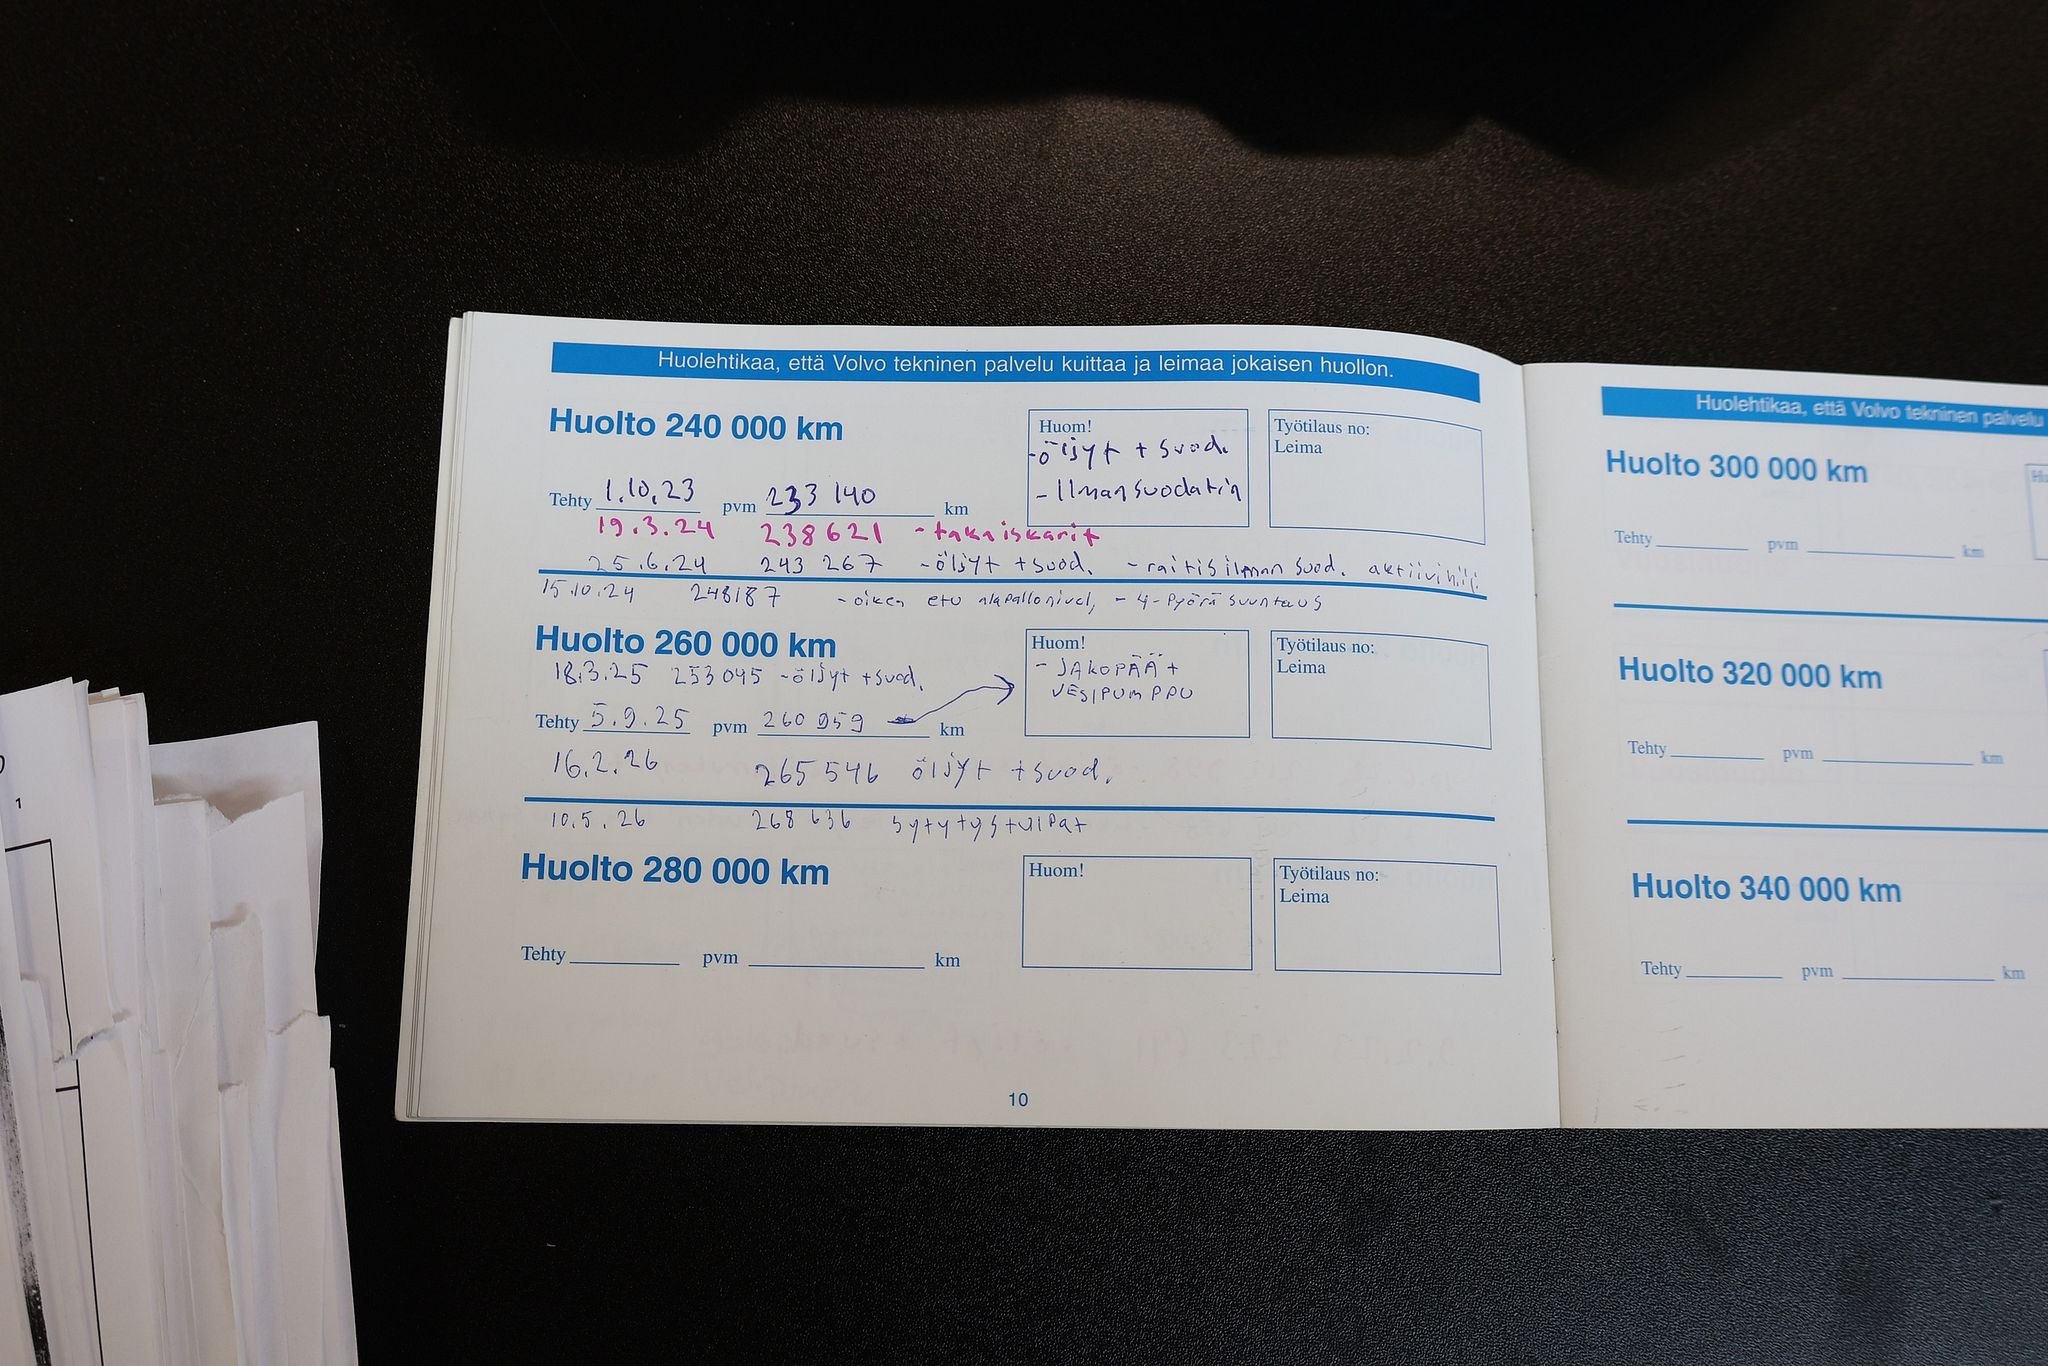 Huolehtikaa, että Volvo tekninen palvelu kuittaa ja leimaa jokaisen huollon.
Huolto 240 000 km
Huom!
-öljyt + suod.
- Ilmansuodatin
Työtilaus no:
Leima
Tehty 1.10.23 pvm 233 140 km
19.3.24 238621 - takaiskarit
25.6.24 243 267 -öljyt +suod. -raitisilman suod. aktiivihiili
15.10.24 248187 -oikea etu alapallonivel, - 4-pyörä suuntaus
Huolto 260 000 km
Huom!
- JAKOPÄÄ +
VESIPUMPPU
Työtilaus no:
Leima
18.3.25 253045 -öljyt +suod.
Tehty 5.9.25 pvm 260 959 km
16.2.26 265 546 öljyt +suod.
10.5.26 268 636 sytytystulpat
Huolto 280 000 km
Huom!
Työtilaus no:
Leima
Tehty pvm km
10
Huolehtikaa, että Volvo tekninen palvelu
Huolto 300 000 km
Tehty pvm km
Huolto 320 000 km
Tehty pvm km
Huolto 340 000 km
Tehty pvm km
1